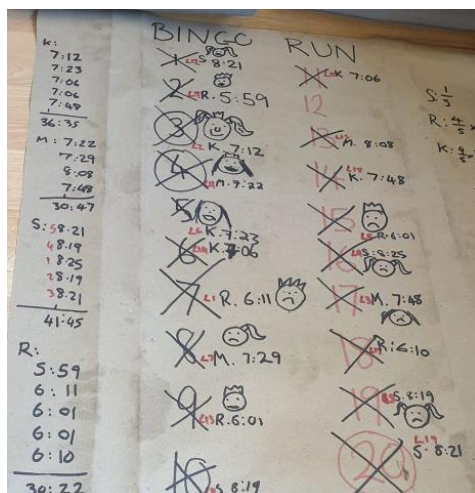 BINGO RUN
K:
7:12
7:23
7:06
7:06
7:48
36:35
M: 7:22
7:29
8:08
7:48
30:47
S: 5 8.21
4 8.19
1 8.25
2 8.19
3 8.21
41:45
R:
5:59
6:11
6:01
6:01
6:10
30:22
1 S 8:21
2 R. 5:59
3
K. 7:12
4
M. 7:22
5
K. 7:23
6 K. 7:06
7 L1 R. 6:11
8 L7 M. 7:29
9 L13 R. 6:01
10 S 8:19
11 K 7:06
12
13 M. 8:08
14 K. 7:48
15
R. 6:01
16 S. 8:25
17 L3 M. 7:48
18 R: 6:10
19 S. 8:19
20 L19
S. 8:21
S: 1/5
R: 4/5
K: